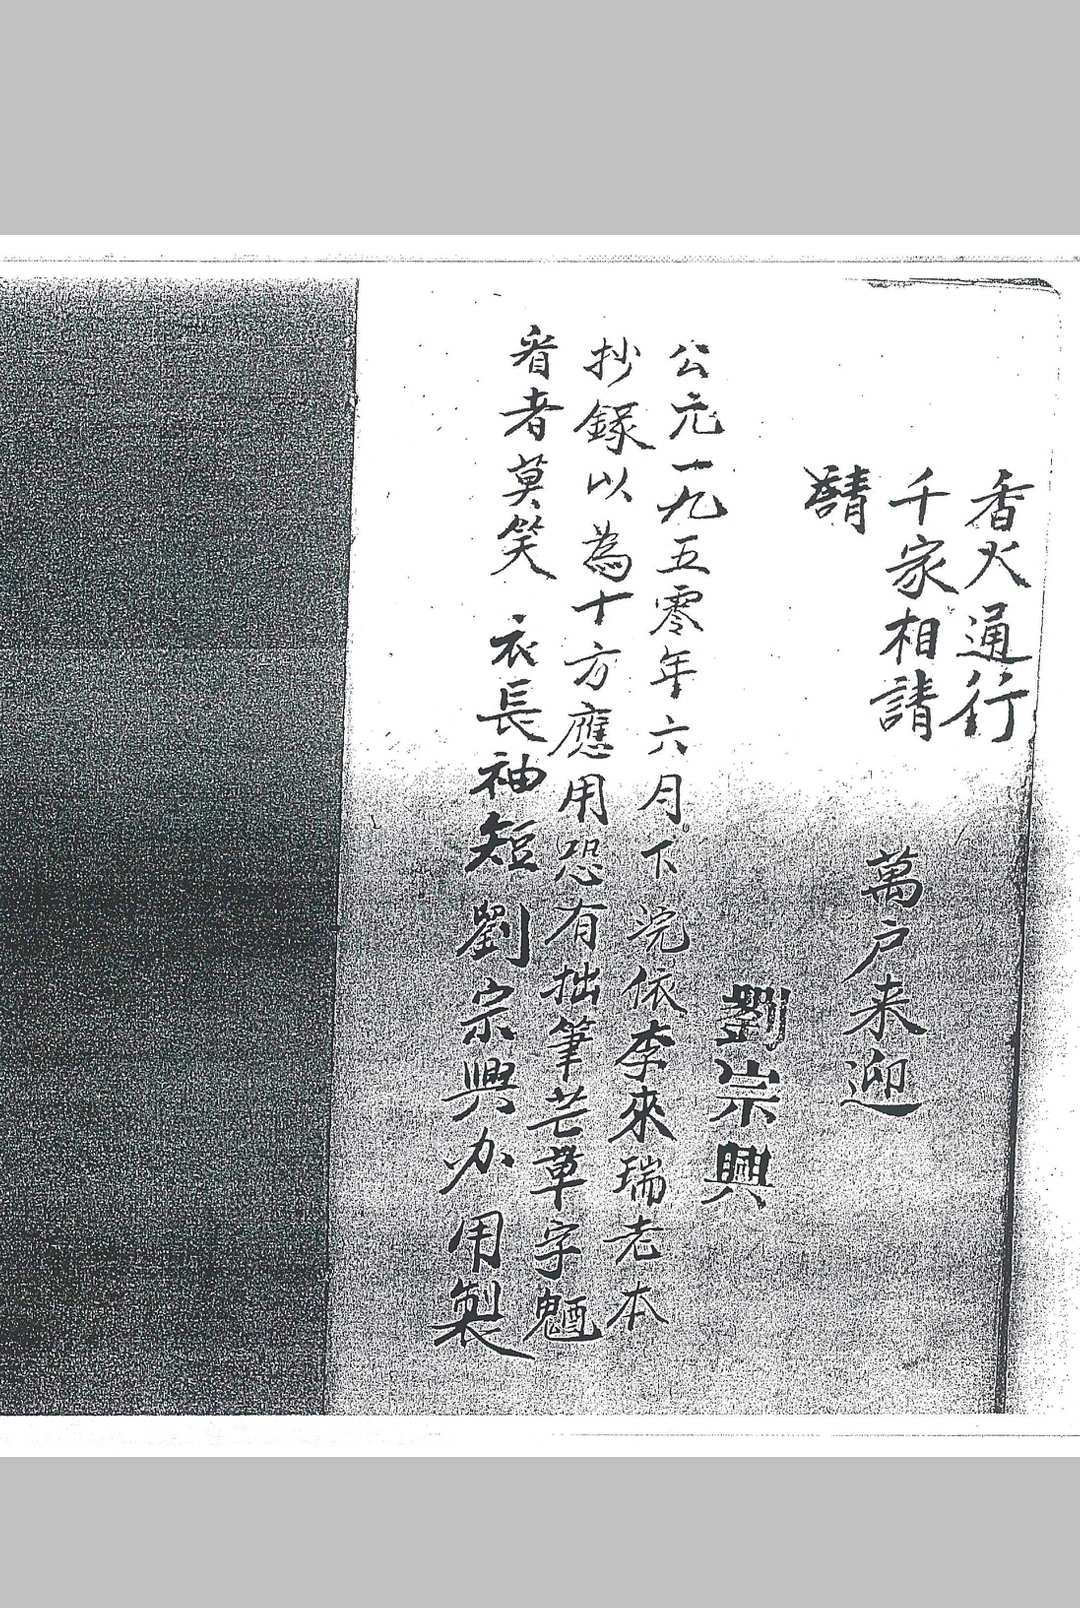 香火通行
千家相請
萬户来迎
請
劉宗興
公元一九五零年六月下浣依李來瑞老本
抄錄以為十方應用恐有拙筆芒草字魉
看者莫笑 衣長袖短劉宗興办用製